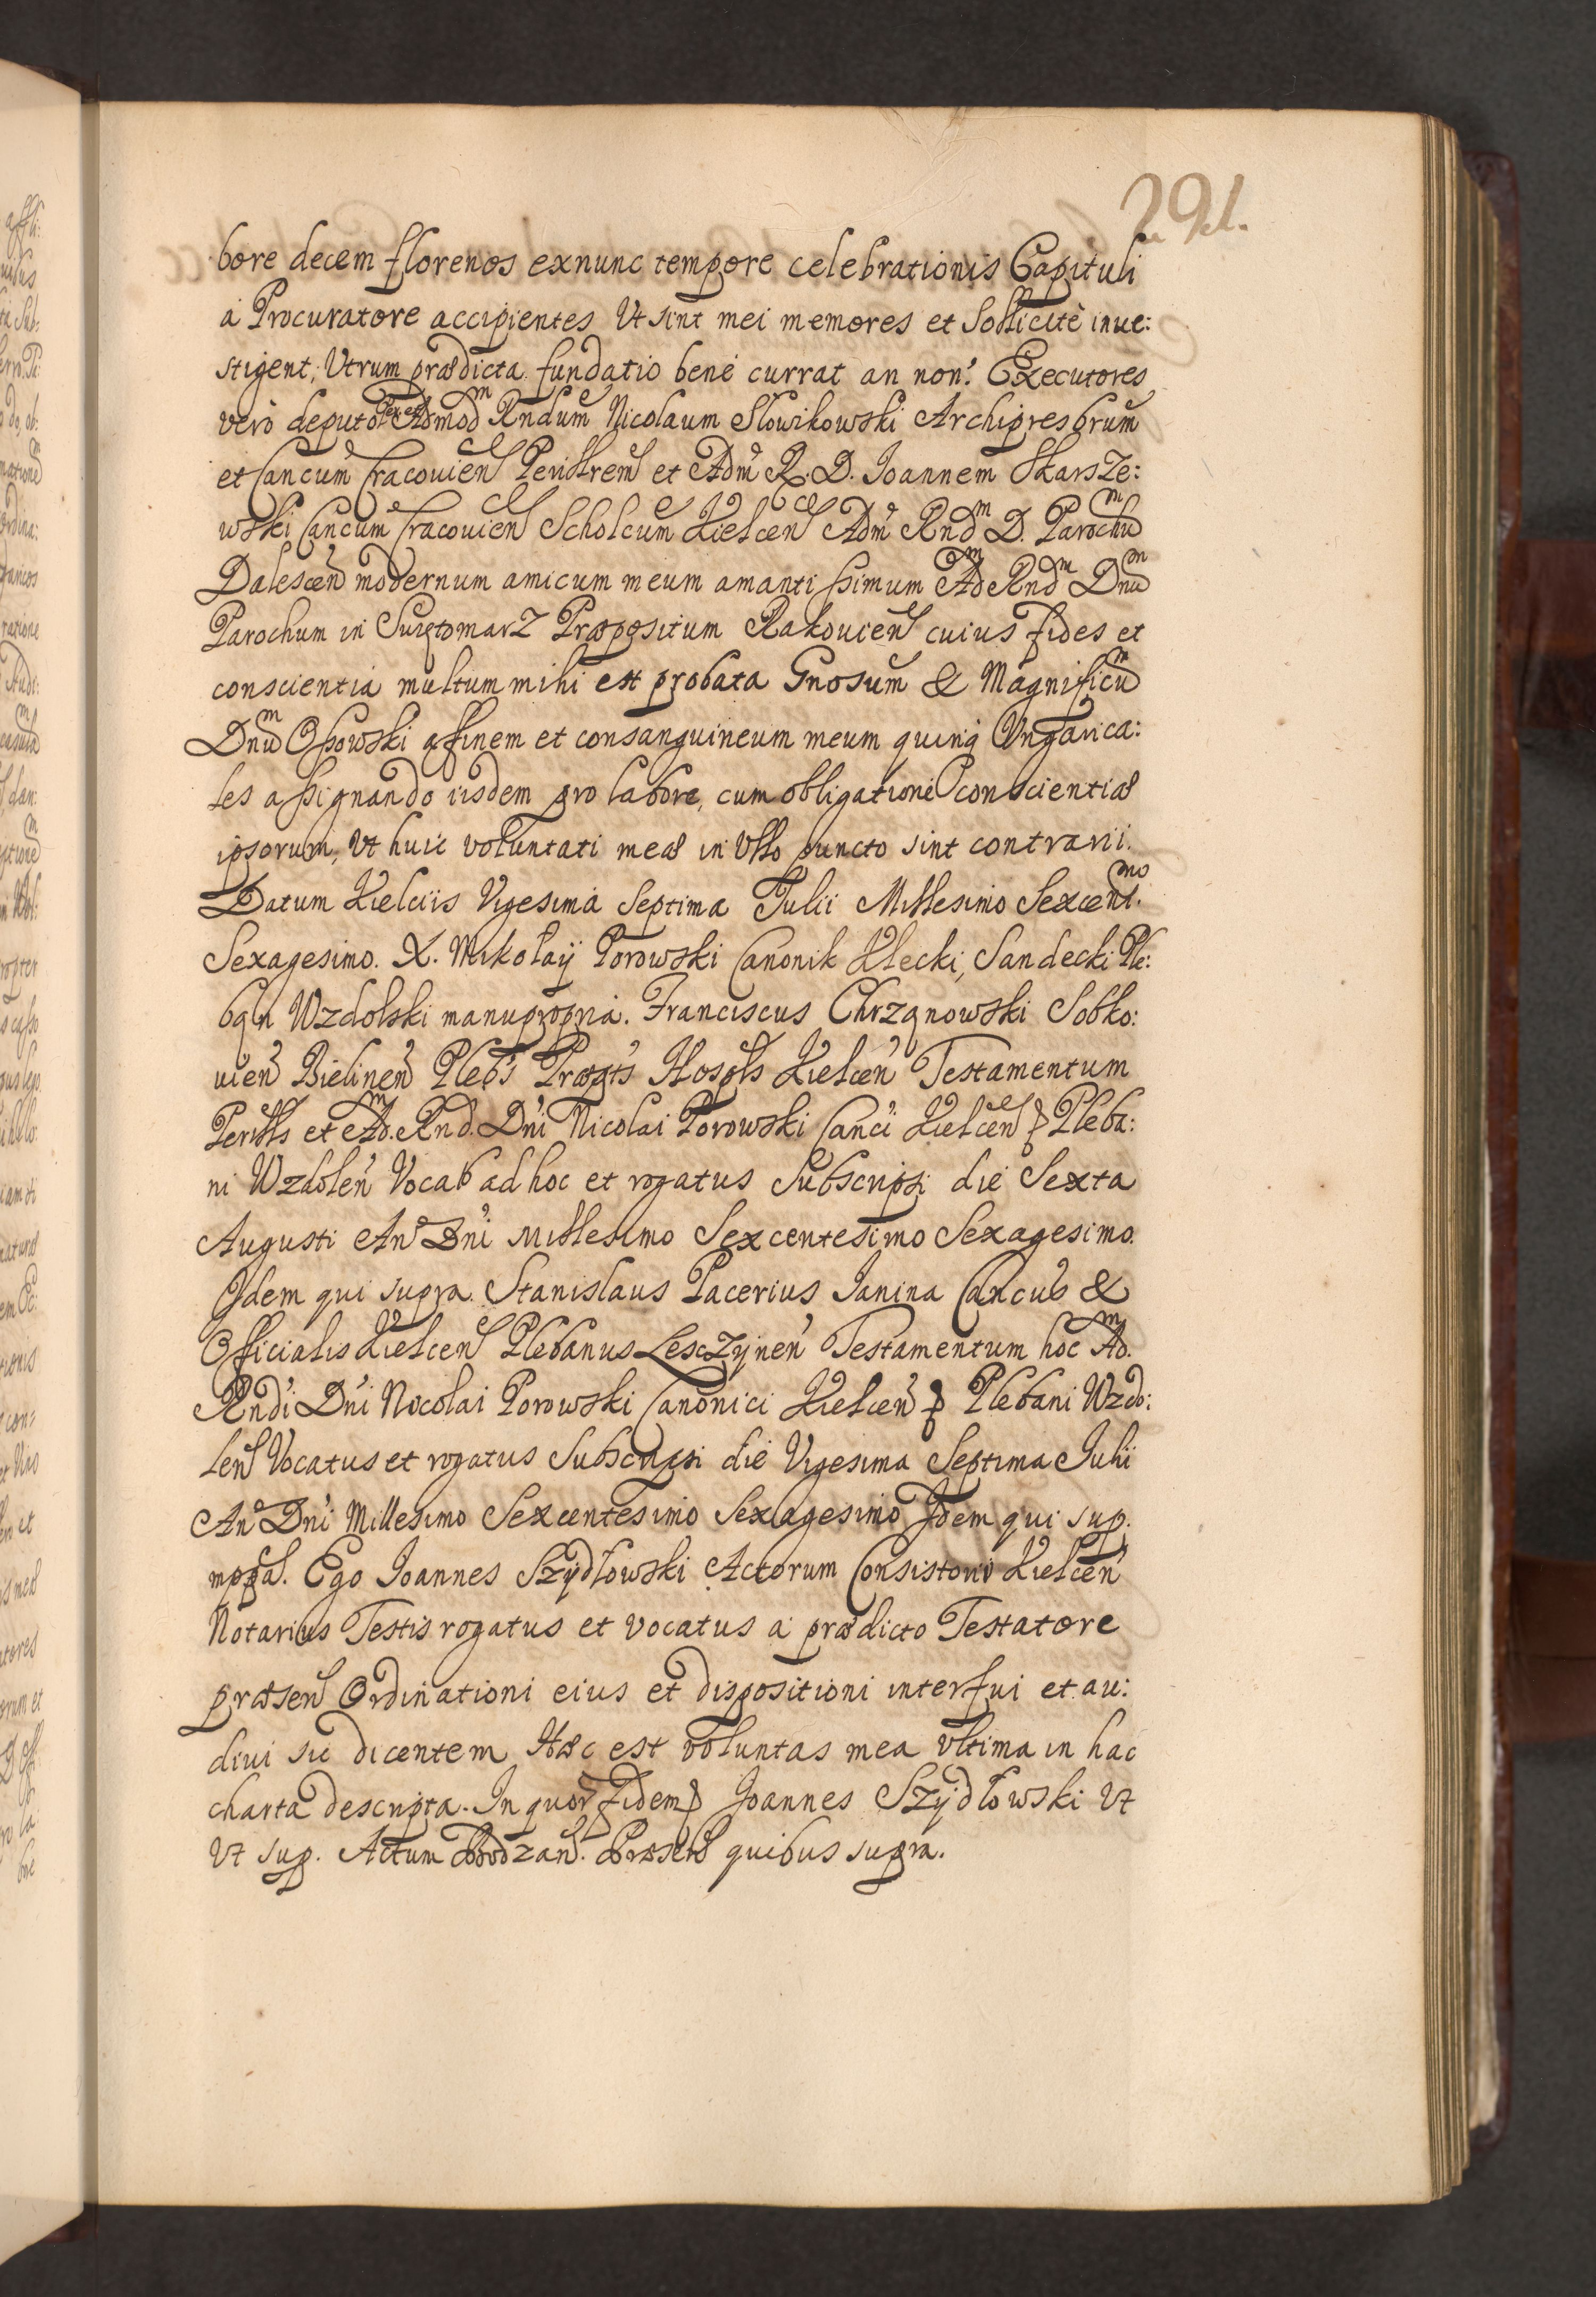 291.
bore decem florenos exnunc tempore celebrationis Capituli
à Procuratore accipientes Ut sint mei memores et Sollicitè inve:
stigent, Utrum prædicta fundatio benè currat an non? Executores
verò deputo Admodm Rndum Nicolaum Słowikowski Archipresbrum
et Cancum Cracovien Perillrem et Adm R. D. Joannem Skarsze:
wski Cancum Cracovien Scholcum Kielcen Adm Rndm D. Parochum
Dalescen modernum amicum meum amantissimum Adm Rndm Dnum
Parochum in Świętomarz Præpositum Rakovien cuius fides et
conscientia multum mihi est probata Gnosum & Magnificum
Dnum Ossowski affinem et consanguineum meum quinq Ungarica:
les assignando iisdem pro labore, cum obligatione conscientiæ
ipsorum, Ut huic voluntati meæ in Ullo puncto sint contrarii.
Datum Kielciis Vigesima Septima Julii Millesimo Sexcent.mo
Sexagesimo. X. Mikołaÿ Porowski Canonik Klecki, Sandecki Ple:
bąn Wzdolski manupropria. Franciscus Chrząnowski Sobko:
vien Bielinen Plebs Præpts Hospls Kielcen Testamentum
Perillis et Adm. Rnd. Dni Nicolai Porowski Canci Kielcen & Pleba:
ni Wzdolen Vocab ad hoc et rogatus Subscripsi die Sexta
Augusti Ano Dni Millesimo Sexcentesimo Sexagesimo.
Idem qui supra. Stanislaus Pacerius Janina Cancus &
Officialis Kielcen Plebanus Lesczynen Testamentum hoc Adm.
Rndi Dni Nocolai Porowski Canonici Kielcen & Plebani Wzdo:
len Vocatus et rogatus Subscripsi die Vigesima Septima Julii
Ano Dni Millesimo Sexcentesimo Sexagesimo Idem qui sup.
mppa. Ego Joannes Szÿdłowski Actorum Consistorii Kielcen
Notarius Testis rogatus et vocatus à prædicto Testatore
præsen Ordinationi eius et dispositioni interfui et au:
divi sic dicentem Hæc est voluntas mea ultima in hac
charta descripta. In quor fidem Joannes Szÿdłowski Ut
Ut sup. Actum Bodzan. Præsen quibus supra.